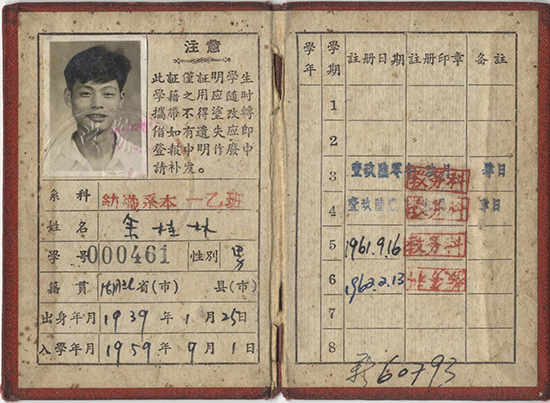 注意
此証僅証明學生
學籍之用应隨時
攜帶不得塗改轉
借如有遺失应即
登報申明作廢申
請补发。
系科 紡系本一乙班
姓名 桂林
學号 000461 性別 男
籍貫 省(市) 县(市)
出身年月 1939年1月25日
入學年月 1959年9月1日
學年 學期 註册日期 註册印章 备註
1
2
3 壹玖陸零年 教务科
4 壹玖陸 教务科
5 1961.9.16 教务科
6 1962.2.13
7
8
60793